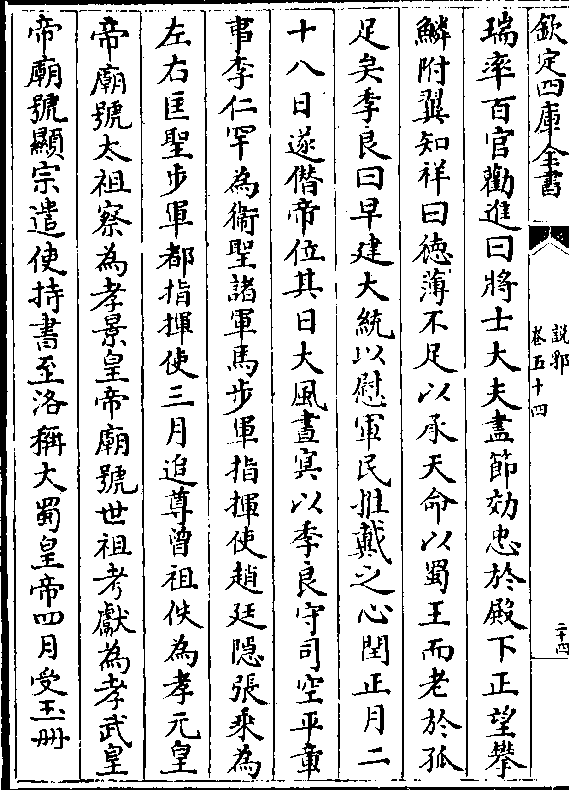 欽定四庫全書
說郛
卷五十四
二十四
瑞率百官勸進曰將士大夫盡節効忠於殿下正望攀
鱗附翼知祥曰德薄不足以承天命以蜀王而老於孤
足矣季良曰早建大統以慰軍民推戴之心閏正月二
十八日遂僭帝位其日大風晝冥以季良守司空平章
事李仁罕為衛聖諸軍馬步軍指揮使趙廷隱張業為
左右匡聖步軍都指揮使三月追尊曾祖佚為孝元皇
帝廟號太祖察為孝景皇帝廟號世祖考獻為孝武皇
帝廟號顯宗遣使持書至洛稱大蜀皇帝四月受玉冊